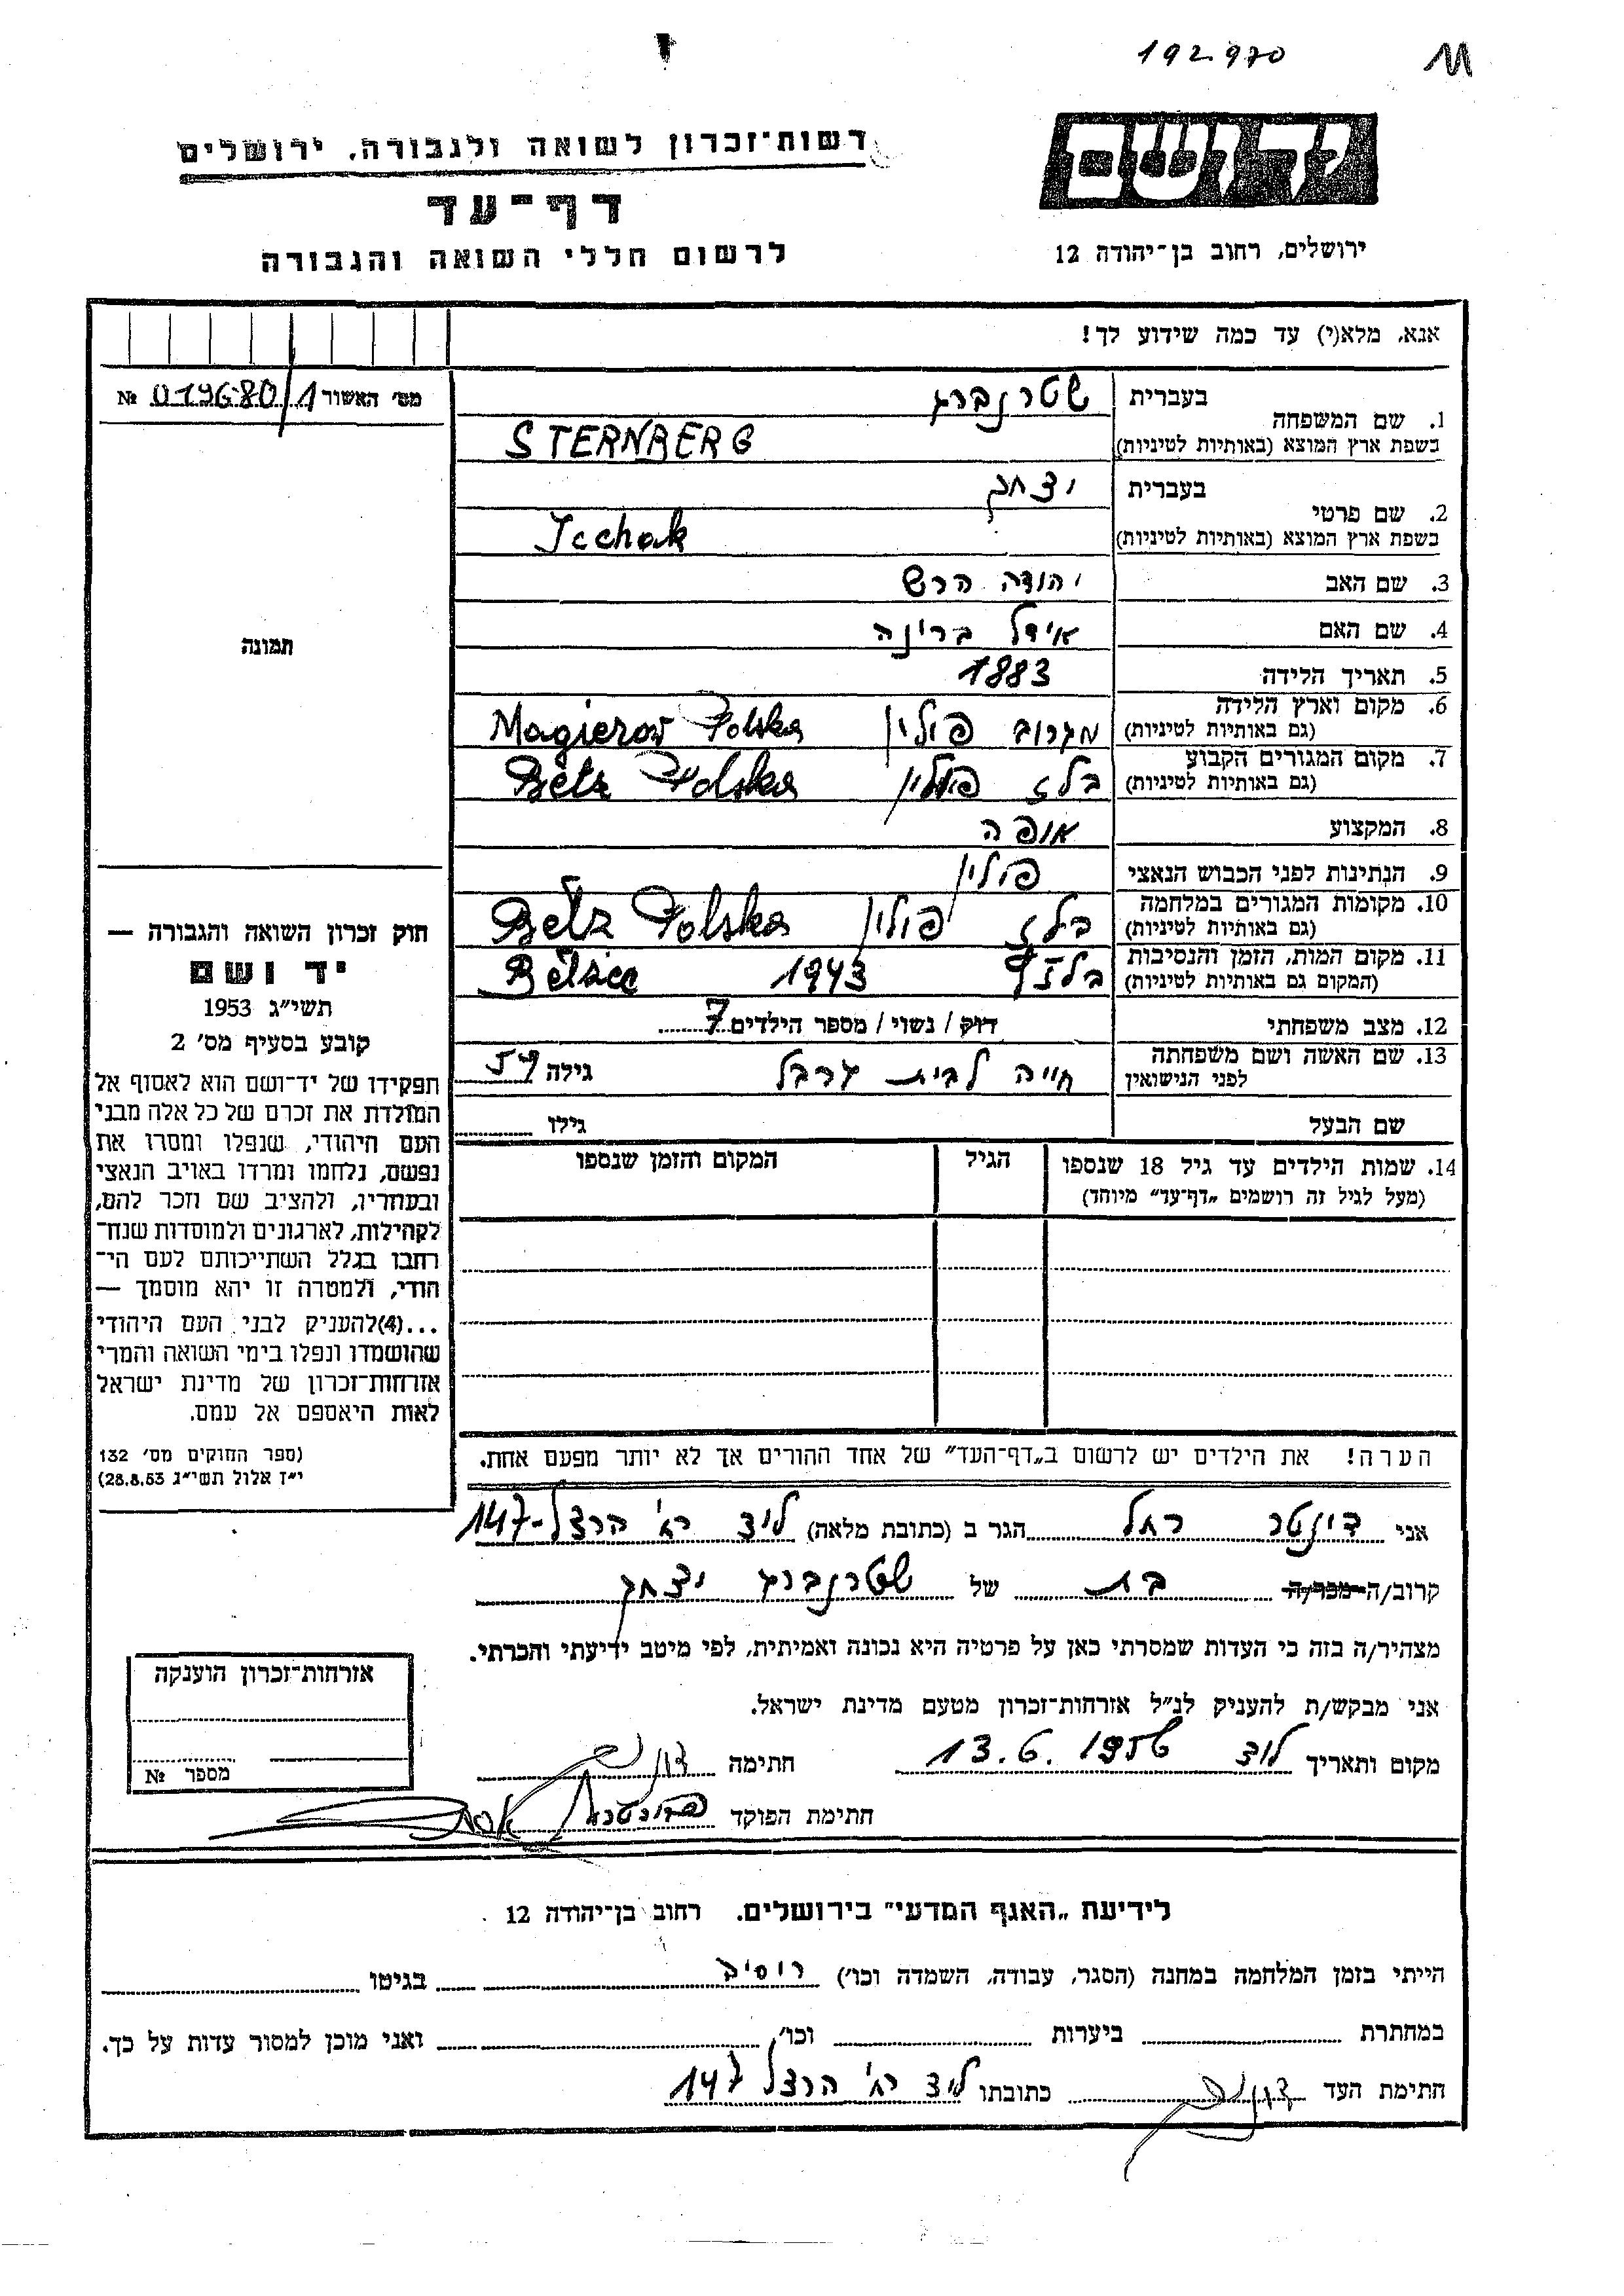 192970
11
יד ושם
ירושלים, רחוב בן־יהודה 12
רשות־זכרון לשואה ולגבורה, ירושלים
דף־עד
לרשום חללי השואה והגבורה
אנא, מלא(י) עד כמה שידוע לך!
מס׳ האשור 019680/1 №
תמונה
חוק זכרון השואה והגבורה —
יד ושם
תשי״ג 1953
קובע בסעיף מס׳ 2
תפקידו של יד־ושם הוא לאסוף אל
המולדת את זכרם של כל אלה מבני
העם היהודי, שנפלו ומסרו את
נפשם, נלחמו ומרדו באויב הנאצי
ובעוזריו, ולהציב שם וזכר להם,
לקהילות, לארגונים ולמוסדות שנח־
רחבו בגלל השתייכותם לעם הי־
הודי, ולמטרה זו יהא מוסמך —
...(4)להעניק לבני העם היהודי
שהושמדו ונפלו בימי השואה והמרי
אזרחות־זכרון של מדינת ישראל
לאות היאספם אל עמם.
(ספר החוקים מס׳ 132
י״ז אלול תשי״ג 28.8.53)
1. שם המשפחה בעברית שטרנברג
בשפת ארץ המוצא (באותיות לטיניות) STERNBERG
2. שם פרטי בעברית יצחק
בשפת ארץ המוצא (באותיות לטיניות) Icchak
3. שם האב יהודה הרש
4. שם האם אידל ברינה
5. תאריך הלידה 1883
6. מקום וארץ הלידה (גם באותיות לטיניות) מגרוב פולין Magierow Polska
7. מקום המגורים הקבוע (גם באותיות לטיניות) בלז פולין Bełz Polska
8. המקצוע אופה
9. הנתינות לפני הכבוש הנאצי פולין
10. מקומות המגורים במלחמה (גם באותיות לטיניות) בלז פולין Bełz Polska
11. מקום המות, הזמן והנסיבות (המקום גם באותיות לטיניות) בלזץ 1943 Bełzec
12. מצב משפחתי רווק / נשוי / מספר הילדים 7
13. שם האשה ושם משפחתה לפני הנישואין חייה לבית גילה 54
שם הבעל גילו
14. שמות הילדים עד גיל 18 שנספו הגיל המקום והזמן שנספו
(מעל לגיל זה רושמים „דף־עד״ מיוחד)
הערה! את הילדים יש לרשום ב„דף־העד״ של אחד ההורים אך לא יותר מפעם אחת.
אני רחל הגר ב (כתובת מלאה) לוד רח׳ הרצל-147
קרוב/ה מכר/ה בת של שטרנברג יצחק
מצהיר/ה בזה כי העדות שמסרתי כאן על פרטיה היא נכונה ואמיתית, לפי מיטב ידיעתי והכרתי.
אני מבקש/ת להעניק לנ״ל אזרחות־זכרון מטעם מדינת ישראל.
מקום ותאריך לוד 13.6.1956 חתימה
חתימת הפוקד
אזרחות־זכרון הוענקה
מספר №
לידיעת „האגף המדעי״ בירושלים. רחוב בן־יהודה 12
הייתי בזמן המלחמה במחנה (הסגר, עבודה, השמדה וכו׳) רוסיה בגיטו
במחתרת ביערות וכו׳ ואני מוכן למסור עדות על כך.
חתימת העד כתובתו לוד רח׳ הרצל 147